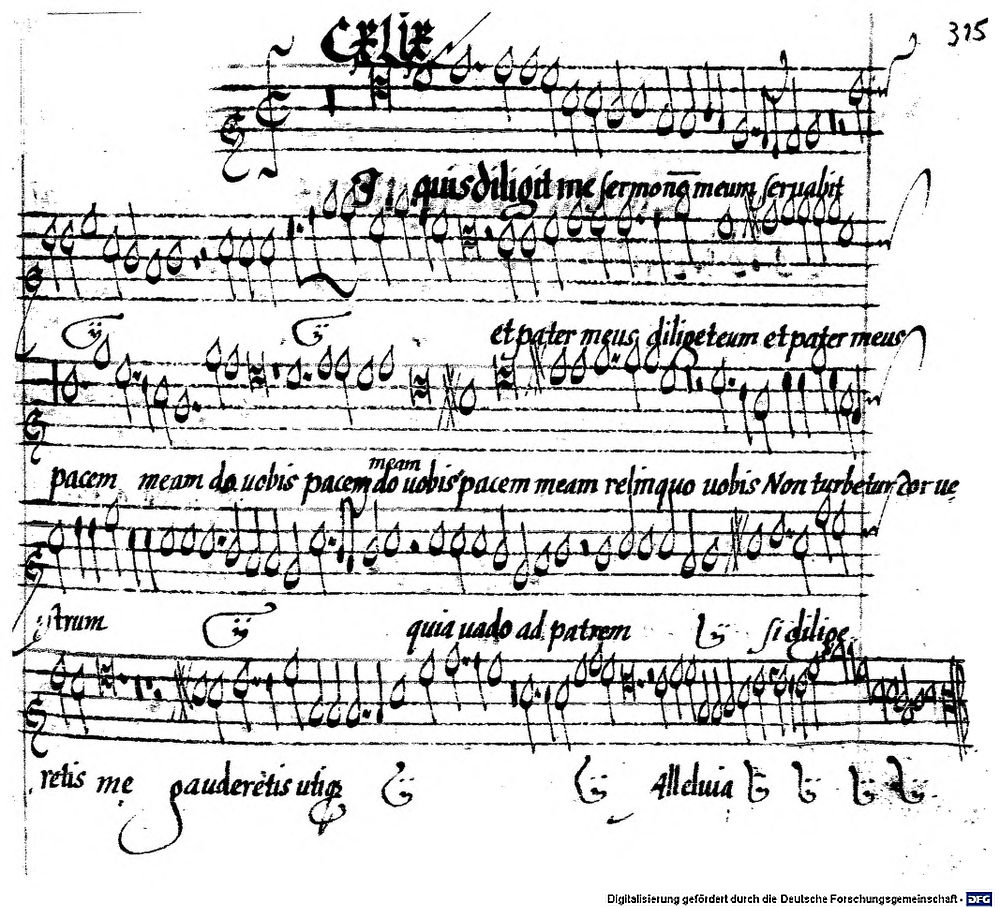 315
Cxlix
Si quis diligit me sermonē meum seruabit
ij ij et pater meus diliget eum et pater meus
pacem meam do uobis pacem meam do uobis pacem meam relinquo uobis Non turbetur cor ue
strum ij quia uado ad patrem ij si dilige
retis me gauderetis utiq; ij ij Alleluia ij ij ij ij
Digitalisierung gefördert durch die Deutsche Forschungsgemeinschaft - DFG